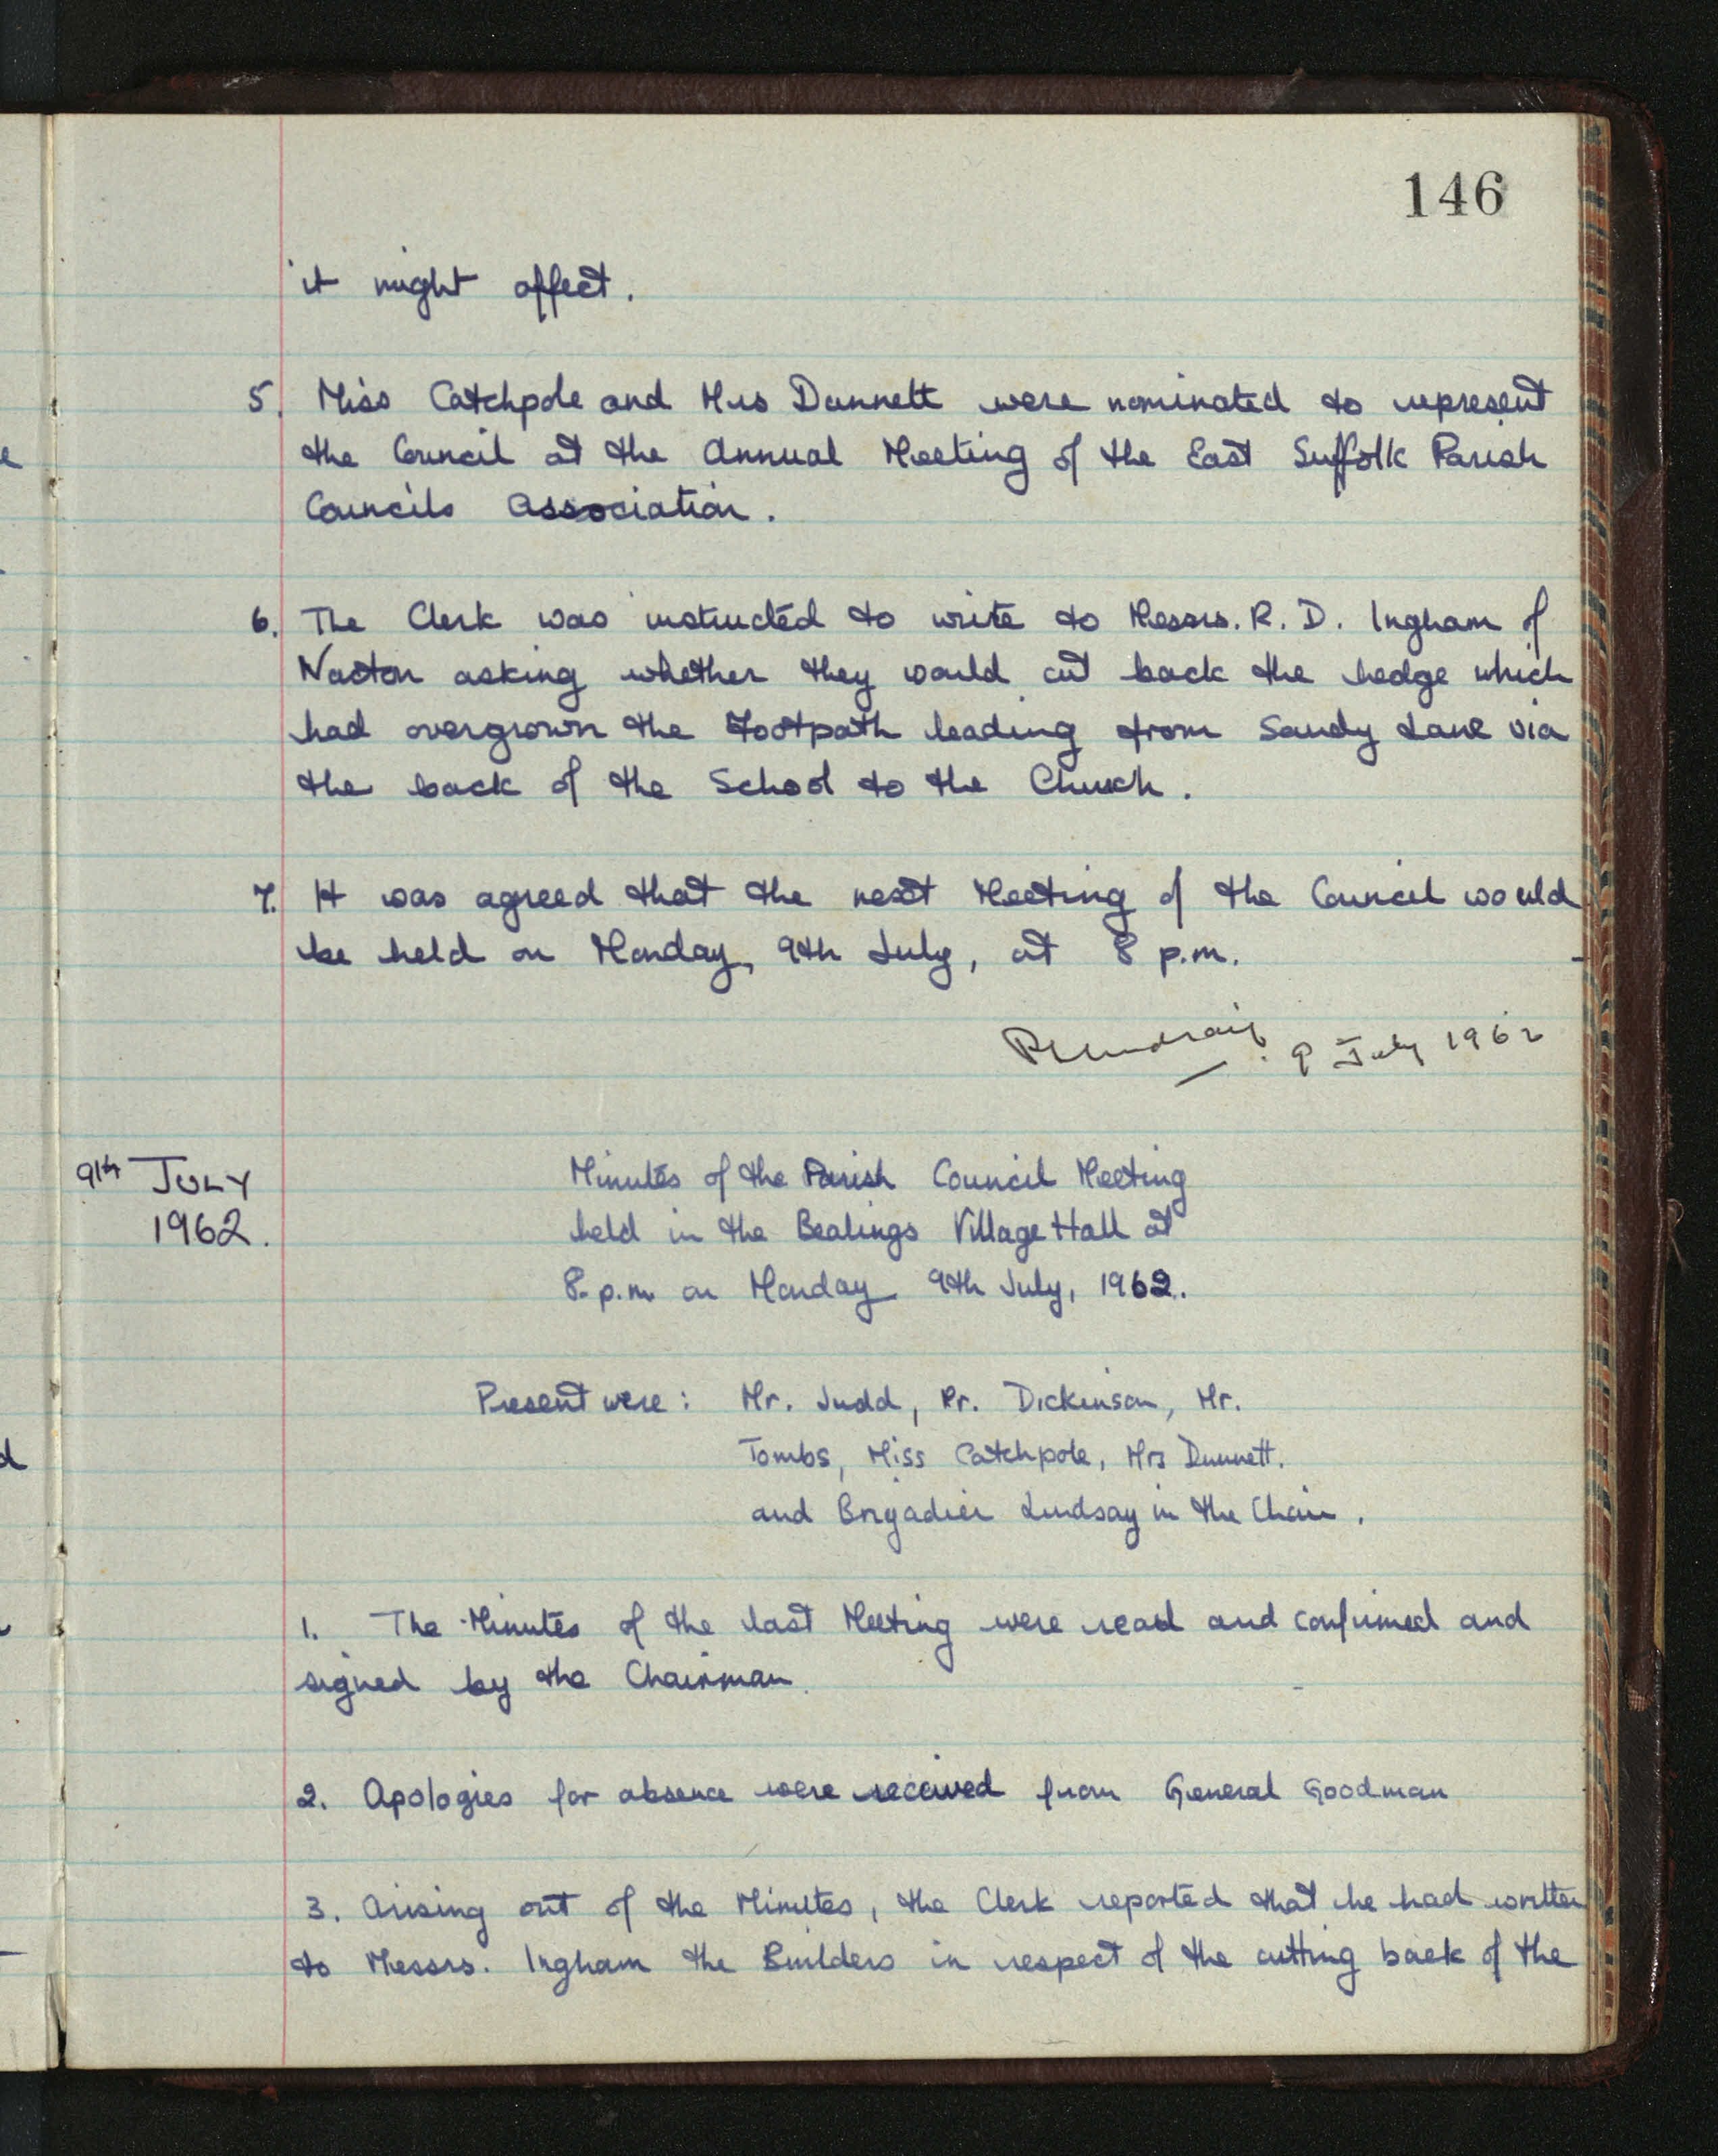 146
it might affect.
5. Miss Catchpole and Mrs Dunnett were nominated to represent
the Council at the Annual Meeting of the East Suffolk Parish
Councils Association.
6. The Clerk was instructed to write to Messrs. R. D. Ingham of
Nacton asking whether they would cut back the hedge which
had overgrown the Footpath leading from Sandy Lane via
the back of the School to the Church.
7. It was agreed that the next Meeting of the Council would
be held on Monday, 9th July, at 8 p.m.
9 July 1962
9th JULY
1962.
Minutes of the Parish Council Meeting
held in the Bealings Village Hall at
8.p.m on Monday 9th July, 1962.
Present were: Mr. Judd, Mr. Dickinson, Mr.
Tombs, Miss Catchpole, Mrs Dunnett.
and Brigadier Lindsay in the Chair.
1. The Minutes of the last Meeting were read and confirmed and
signed by the Chairman.
2. Apologies for absence were received from General Goodman
3. Arising out of the Minutes, the Clerk reported that he had written
to Messrs. Ingham the Builders in respect of the cutting back of the